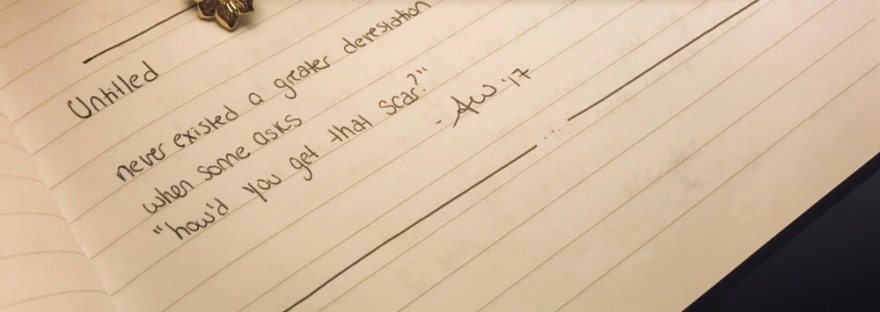 Untitled
never existed a greater deverstation
when some asks
"how'd you get that scar?"
- AW '17
...